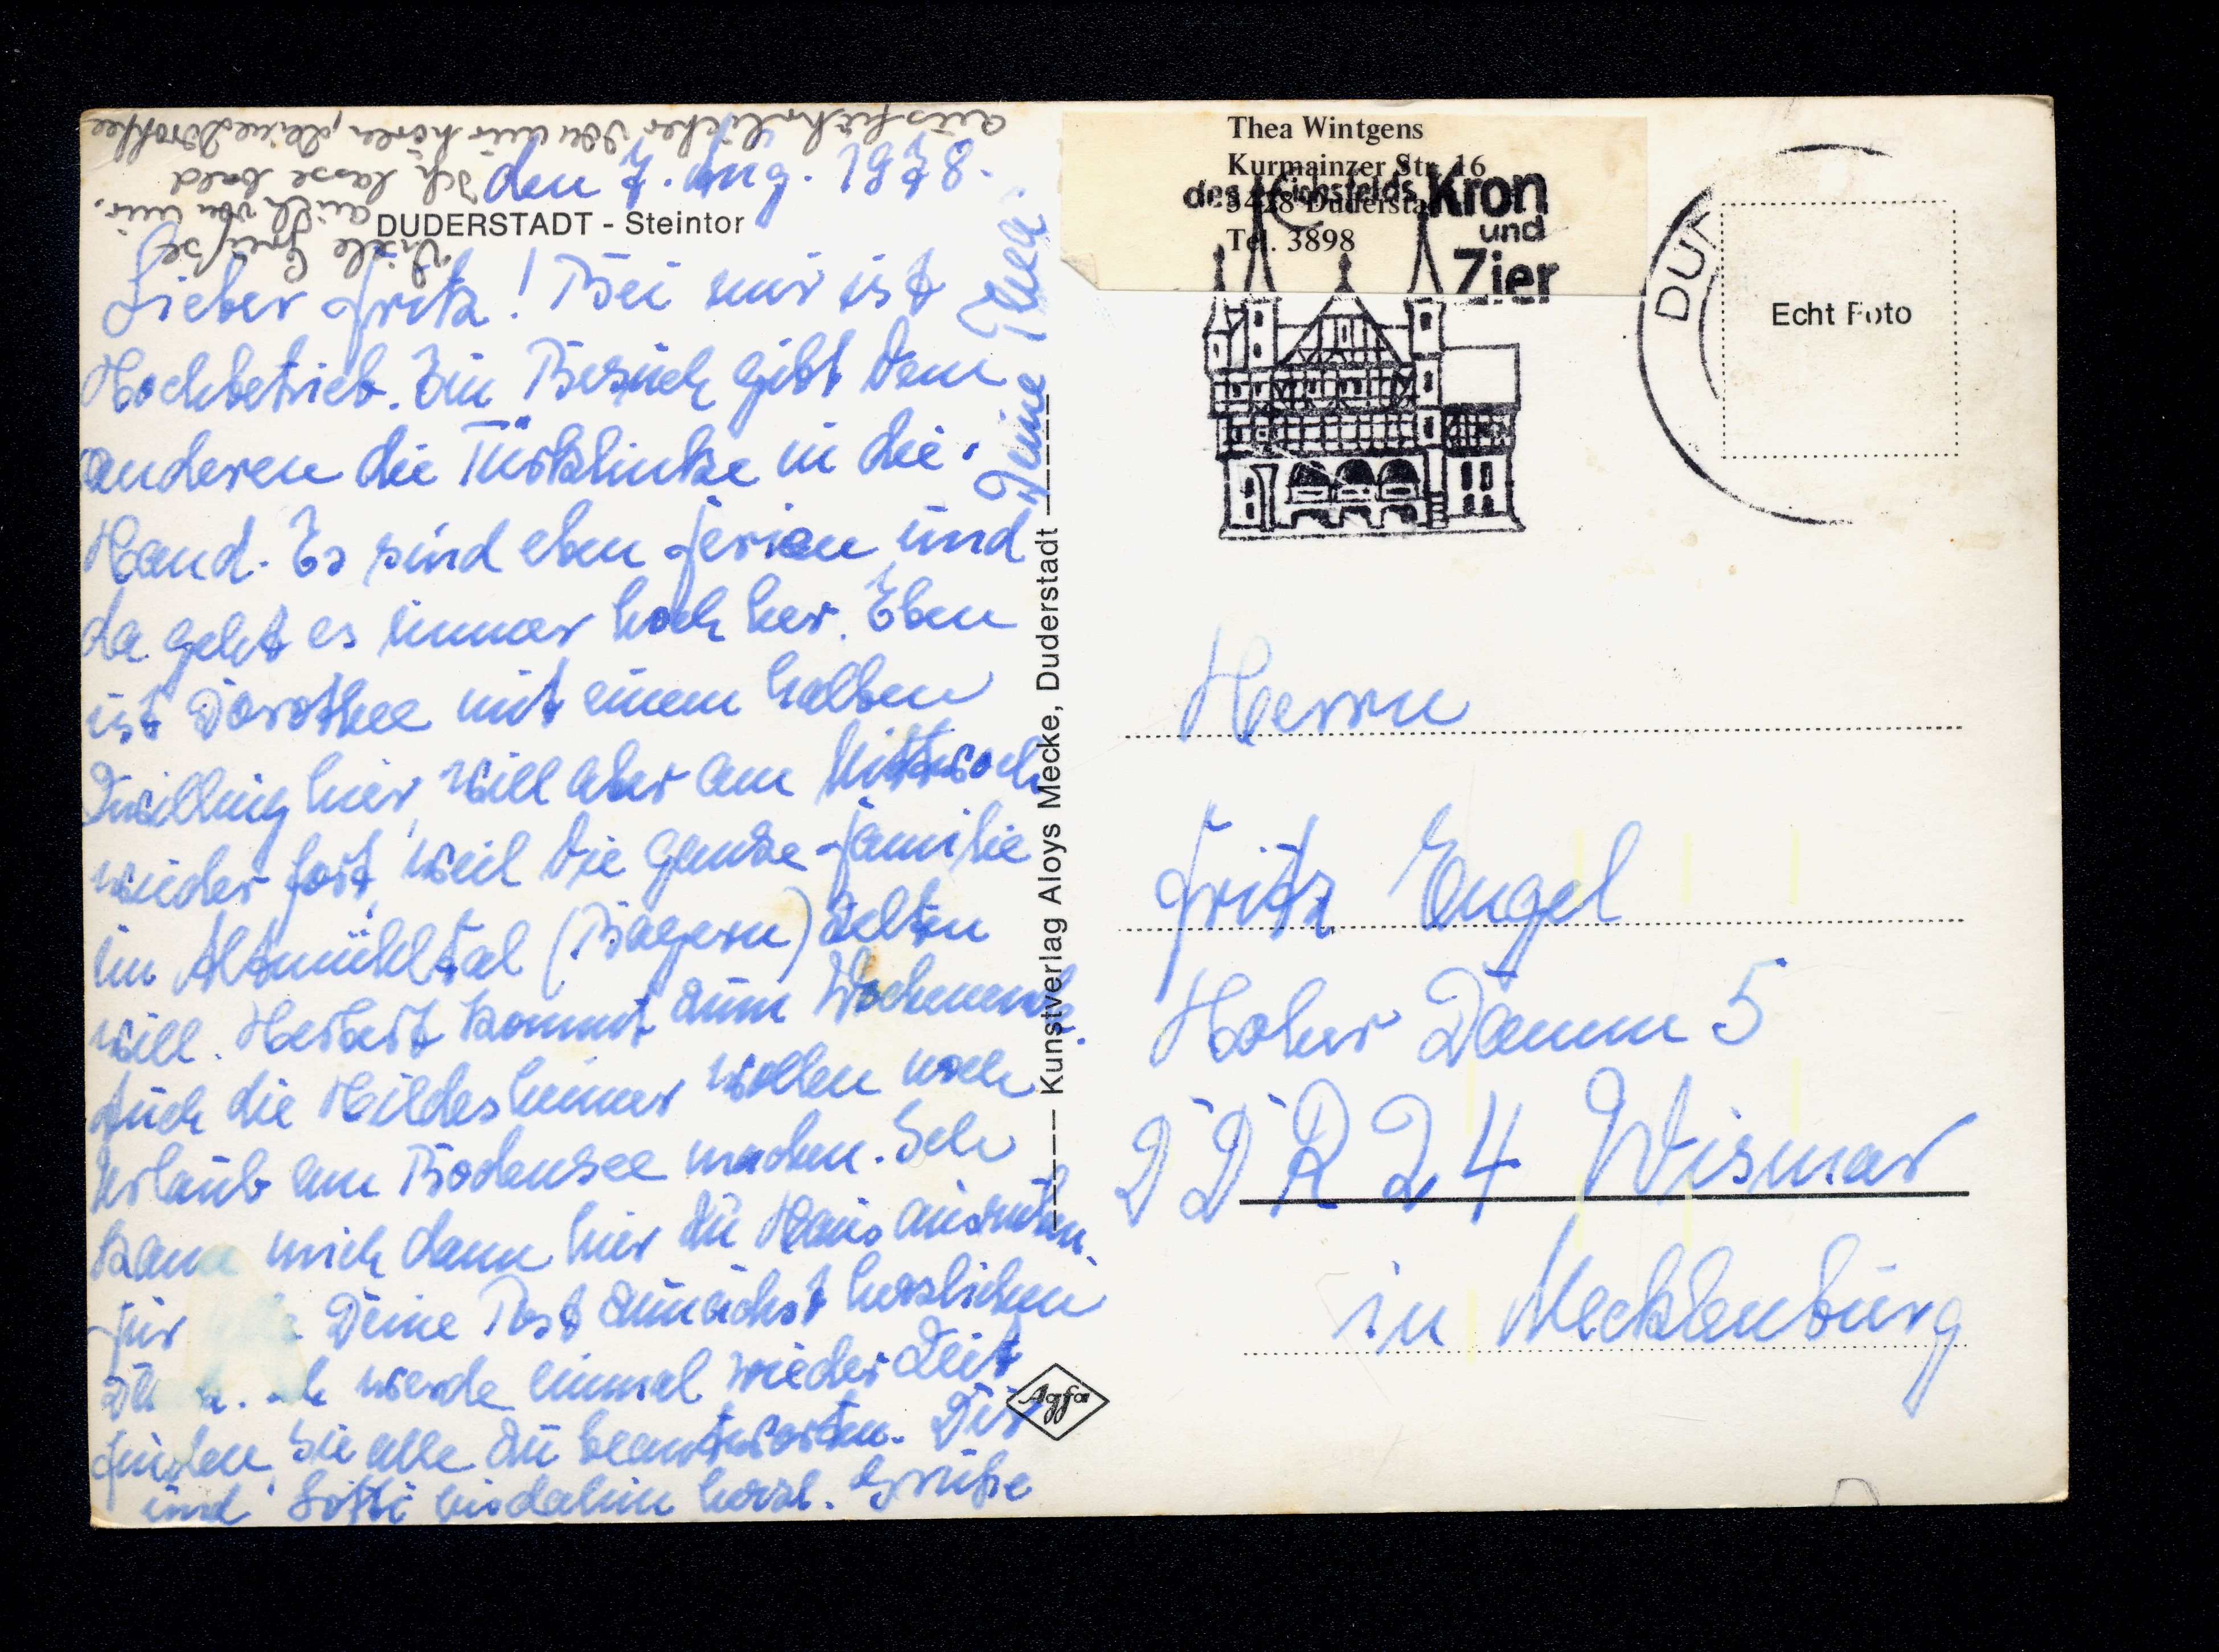 den 7. Aug. 1978.
DUDERSTADT - Steintor
Lieber Fritz! Bei mir ist
Hochbetrieb. Ein Besuch gibt dem
anderen die Türklinke in die
Hand. Es sind eben Ferien und
da geht es immer hoch her. Eben
ist Dorothee mit einem halben
Zwilling hier, will aber am Mittwoch
wieder fort, weil die ganze Familie
im Altmühltal (Bayern) zelten
will. Herbert kommt zum Wochenende.
Auch die Hildesheimer wollen noch
Urlaub am Bodensee machen. Ich
kann mich dann hier zu Haus ausruhen.
Für Deine Post zunächst herzlichen
werde einmal wieder Zeit
finden, sie alle zu beantworten. Dir
und Lotti bisdahin herzl. Grüße
Deine Thea.
Viele Grüße
auch von mir.
Ich lasse bald
ausführlicher von mir hören, deine Dorothee
Kunstverlag Aloys Mecke, Duderstadt
Agfa
Thea Wintgens
Kurmainzer Str. 16
3428 Duderstadt
Tel. 3898
des Eichsfelds Kron
und
Zier
DUD
Echt Foto
Herrn
Fritz Engel
Hoher Damm 5
DDR 24 Wismar
in Mecklenburg